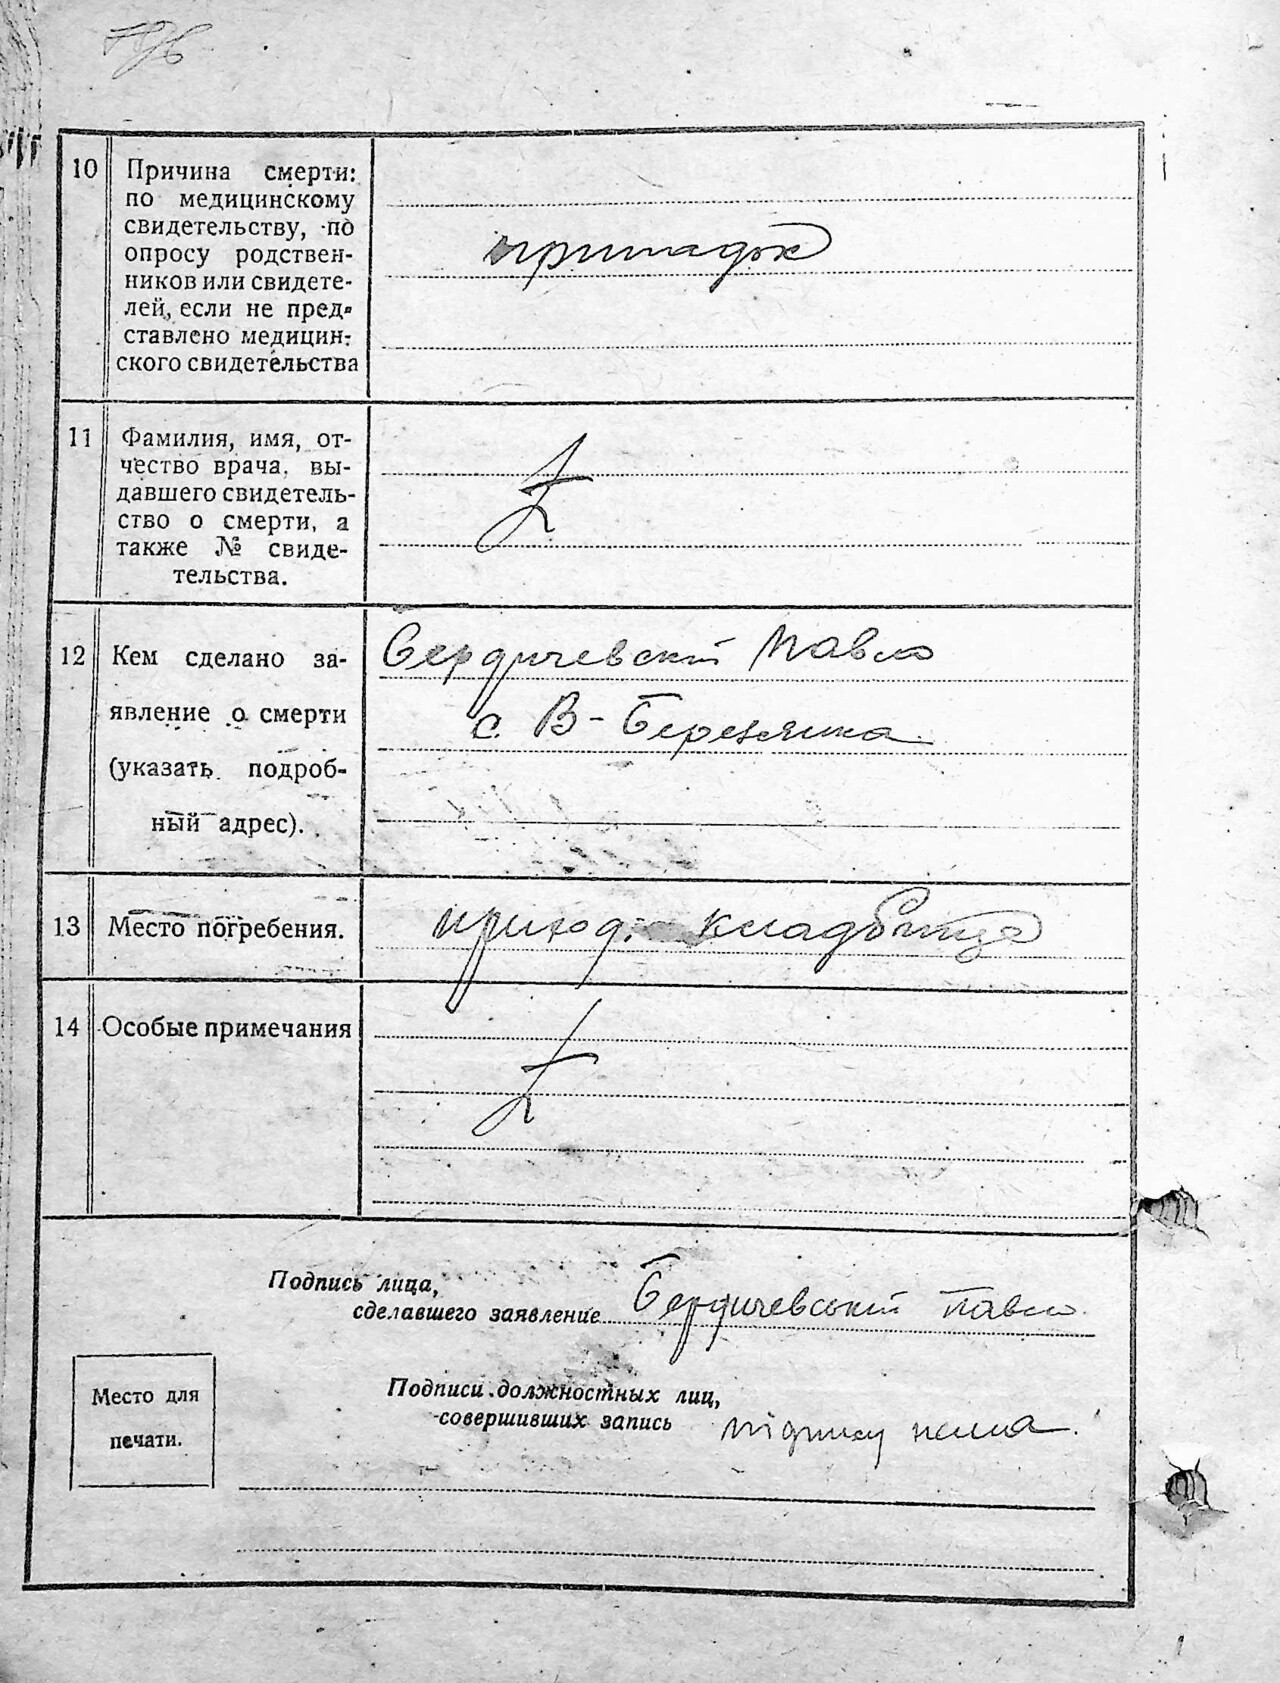 10
Причина смерти:
по медицинскому
свидетельству, по
опросу родствен-
ников или свидете-
лей, если не пред-
ставлено медицин-
ского свидетельства
припадок
11
Фамилия, имя, от-
чество врача, вы-
давшего свидетель-
ство о смерти, а
также № свиде-
тельства.
12
Кем сделано за-
явление о смерти
(указать подроб-
ный адрес).
Бердичевский Павло
с. В-Березянка
13
Место погребения.
приход. кладбище
14
Особые примечания
Подпись лица,
сделавшего заявление Бердичевський Павло
Место для
печати.
Подписи должностных лиц,
совершивших запись підпису нема.